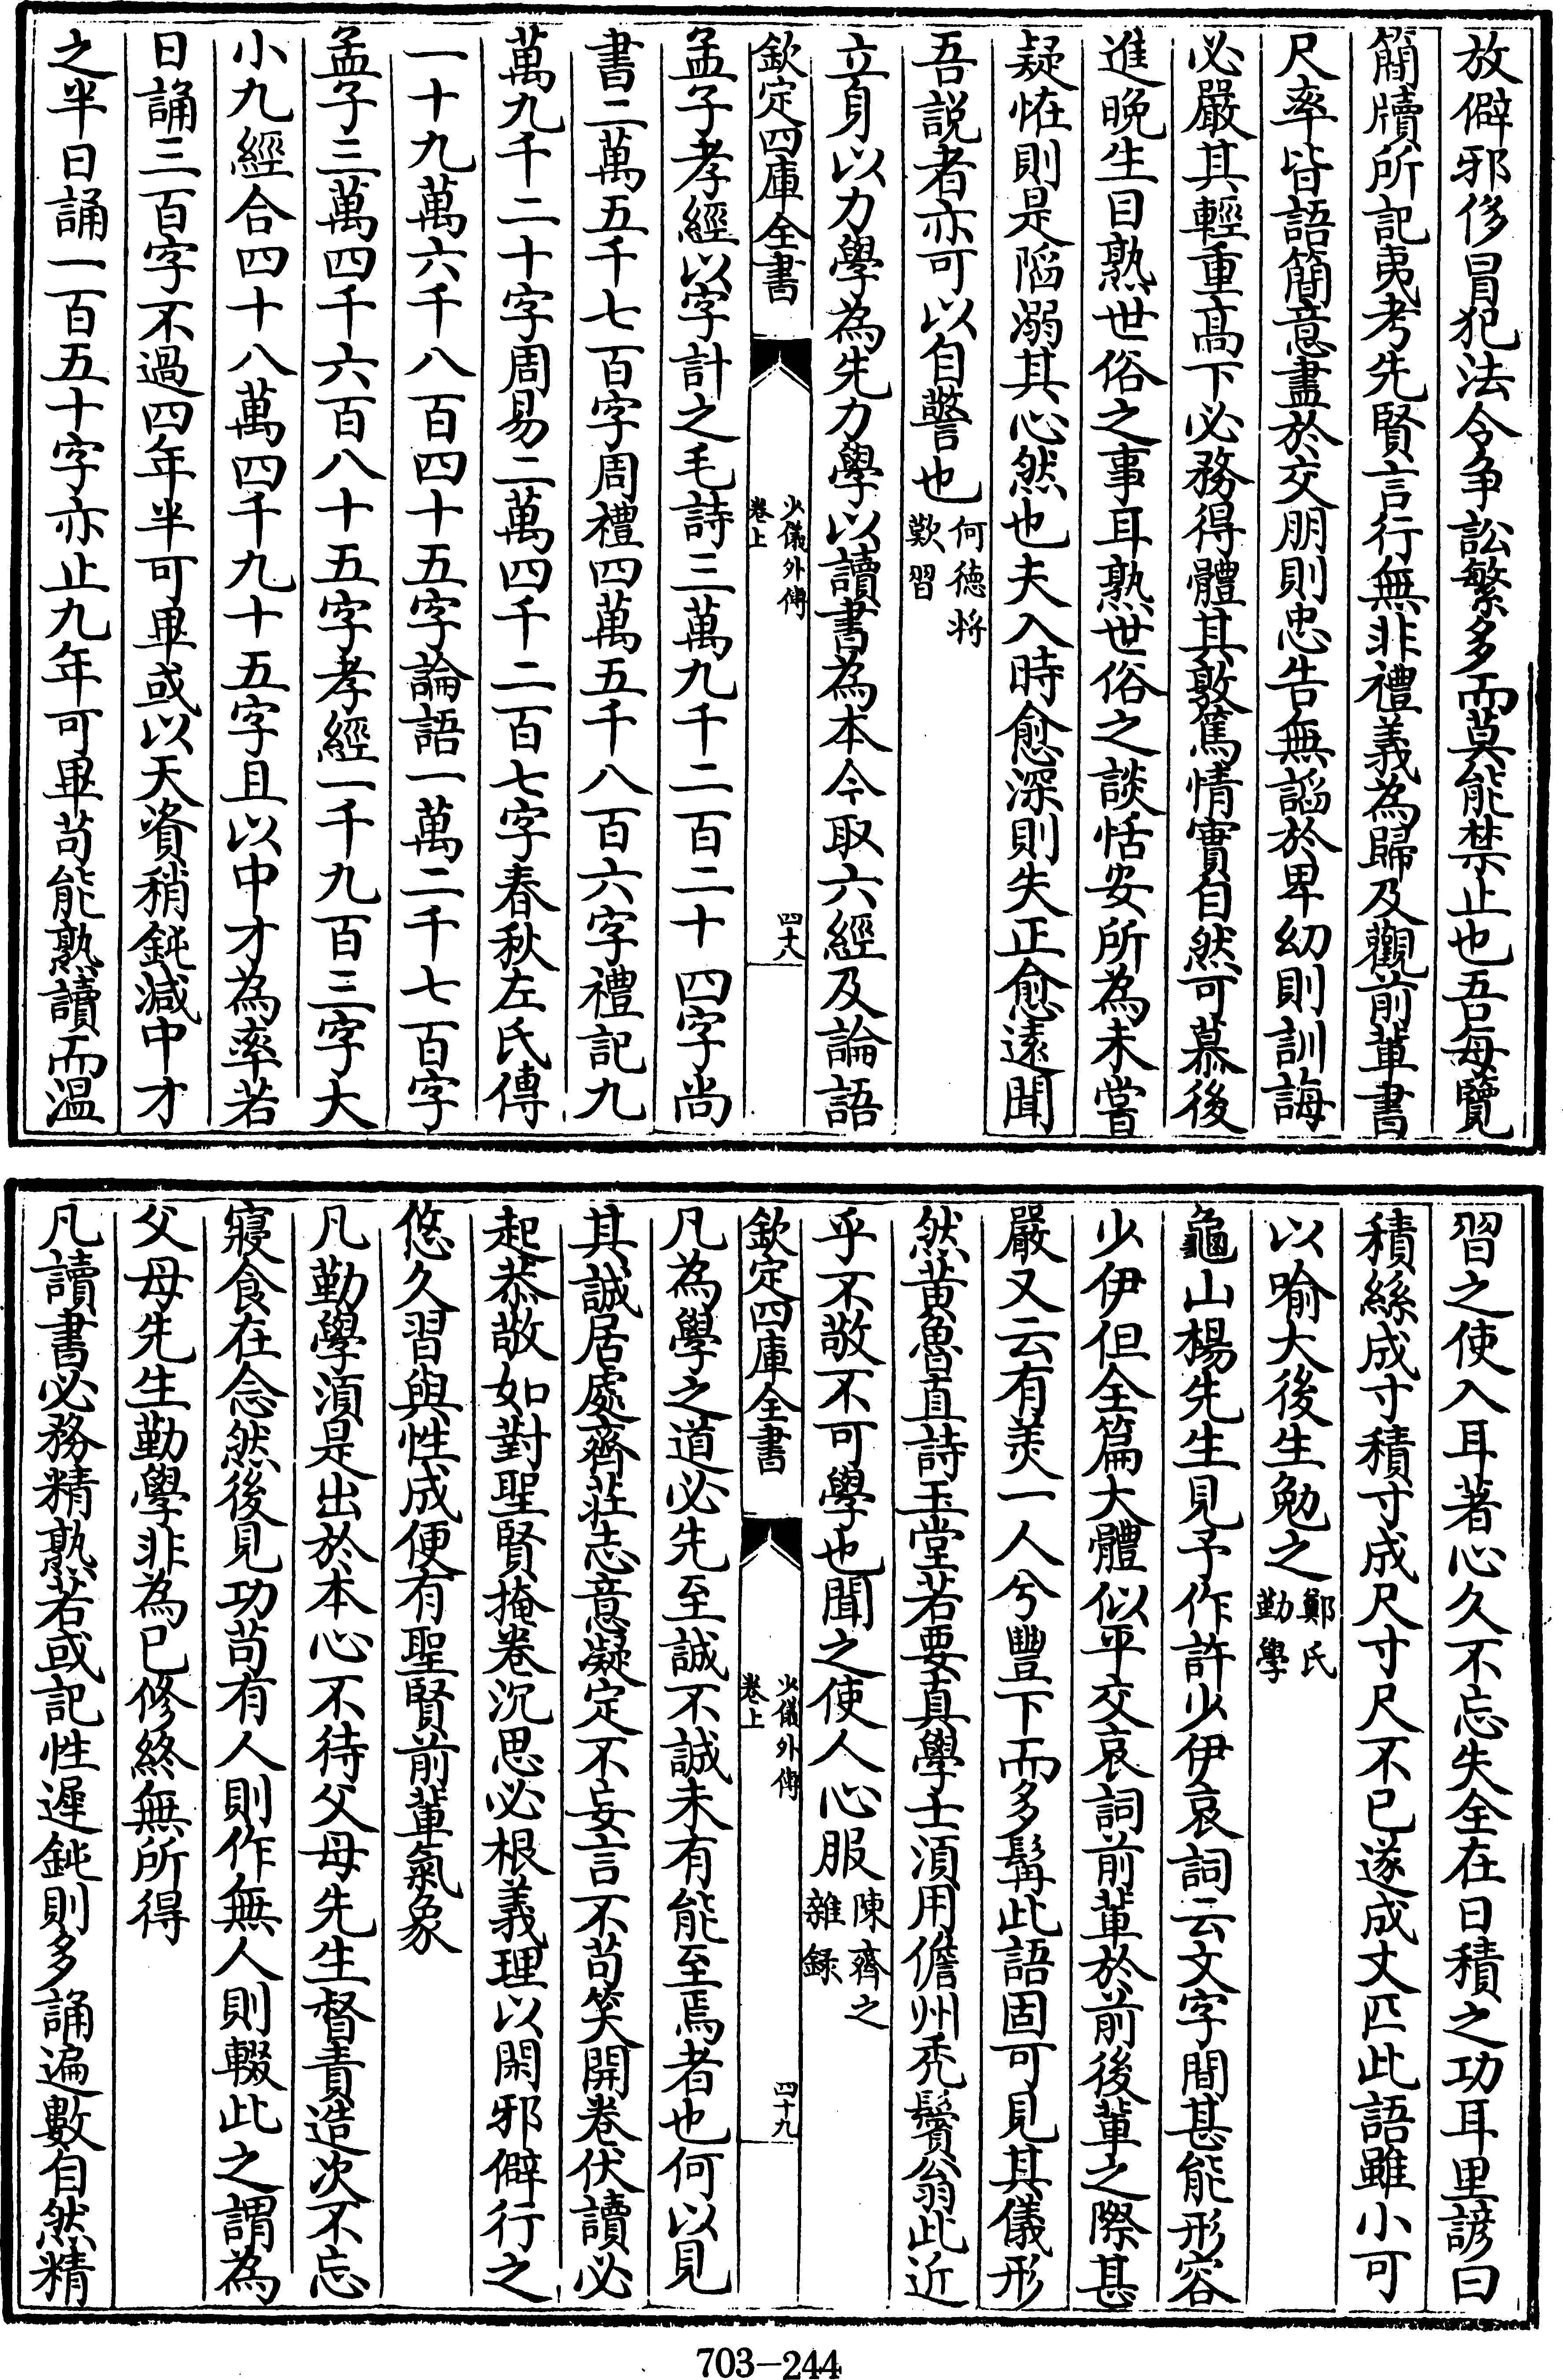 放僻邪侈冒犯法令爭訟繁多而莫能禁止也吾每覽
簡牘所記夷考先賢言行無非禮義為歸及觀前軰書
尺率皆語簡意盡於交朋則忠告無謟於卑幼則訓誨
必嚴其輕重髙下必務得體其敦篤情實自然可慕後
進晚生目熟世俗之事耳熟世俗之談恬安所為未嘗
疑恠則是陷溺其心然也夫入時愈深則失正愈逺聞
吾説者亦可以自警也何德將
歎習
立身以力學為先力學以讀書為本今取六經及論語
欽定四庫全書
少儀外傳
卷上
四十八
孟子孝經以字計之毛詩三萬九千二百二十四字尚
書二萬五千七百字周禮四萬五千八百六字禮記九
萬九千二十字周易二萬四千二百七字春秋左氏傳
一十九萬六千八百四十五字論語一萬二千七百字
孟子三萬四千六百八十五字孝經一千九百三字大
小九經合四十八萬四千九十五字且以中才為率若
日誦三百字不過四年半可畢或以天資稍鈍減中才
之半日誦一百五十字亦止九年可畢苟能熟讀而溫
習之使入耳著心久不忘失全在日積之功耳里諺曰
積絲成寸積寸成尺寸尺不已遂成丈匹此語雖小可
以喻大後生勉之鄭氏
勤學
龜山楊先生見予作許少伊哀詞云文字間甚能形容
少伊但全篇大體似平交哀詞前軰於前後軰之際甚
嚴又云有美一人兮豐下而多髯此語固可見其儀形
然黄魯直詩玉堂若要真學士須用儋州禿鬢翁此近
乎不敬不可學也聞之使人心服陳齊之
雜録
欽定四庫全書
少儀外傳
卷上
四十九
凡為學之道必先至誠不誠未有能至焉者也何以見
其誠居處齊莊志意凝定不妄言不苟笑開卷伏讀必
起恭敬如對聖賢掩卷沉思必根義理以閑邪僻行之
悠久習與性成便有聖賢前軰氣象
凡勤學須是出於本心不待父母先生督責造次不忘
寢食在念然後見功苟有人則作無人則輟此之謂為
父母先生勤學非為已修終無所得
凡讀書必務精熟若或記性遲鈍則多誦遍數自然精
703-244